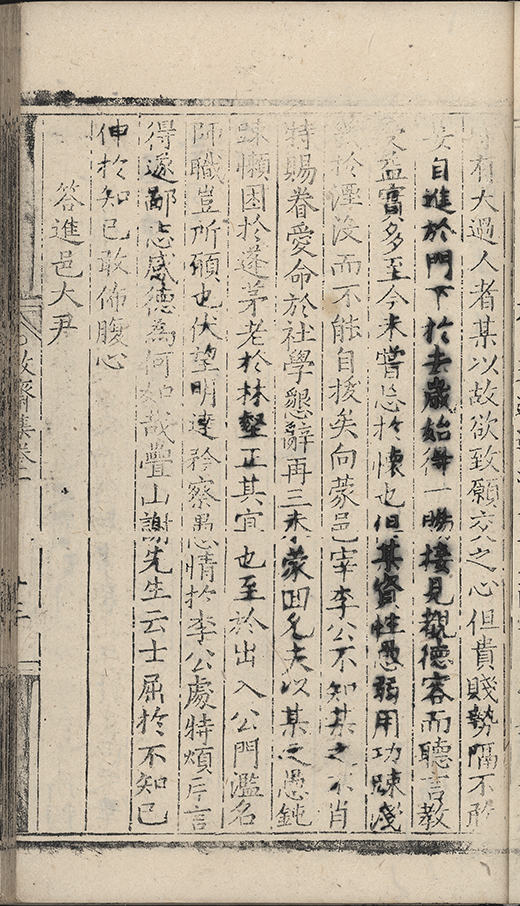 有大過人者某以故欲致願交之心但貴賤勢隔不敢
妄自進於門下於去歲始得一瞻接見觀德容而聽言教
益實多至今未嘗忘於懷也但某資性愚弱用功踈淺
於湮没而不能自拔矣向蒙邑宰李公不知某之不肖
特賜眷愛命於社學懇辭再三未蒙囬允夫以某之愚鈍
踈懶困於蓬茅老於林壑正其宜也至於出入公門濫名
師職豈所願也伏望明達矜察愚情於李公處特煩片言
得遂鄙志感德為何如哉疊山謝先生云士屈於不知己
伸於知已敢佈腹心
答進邑大尹
敬齋集卷